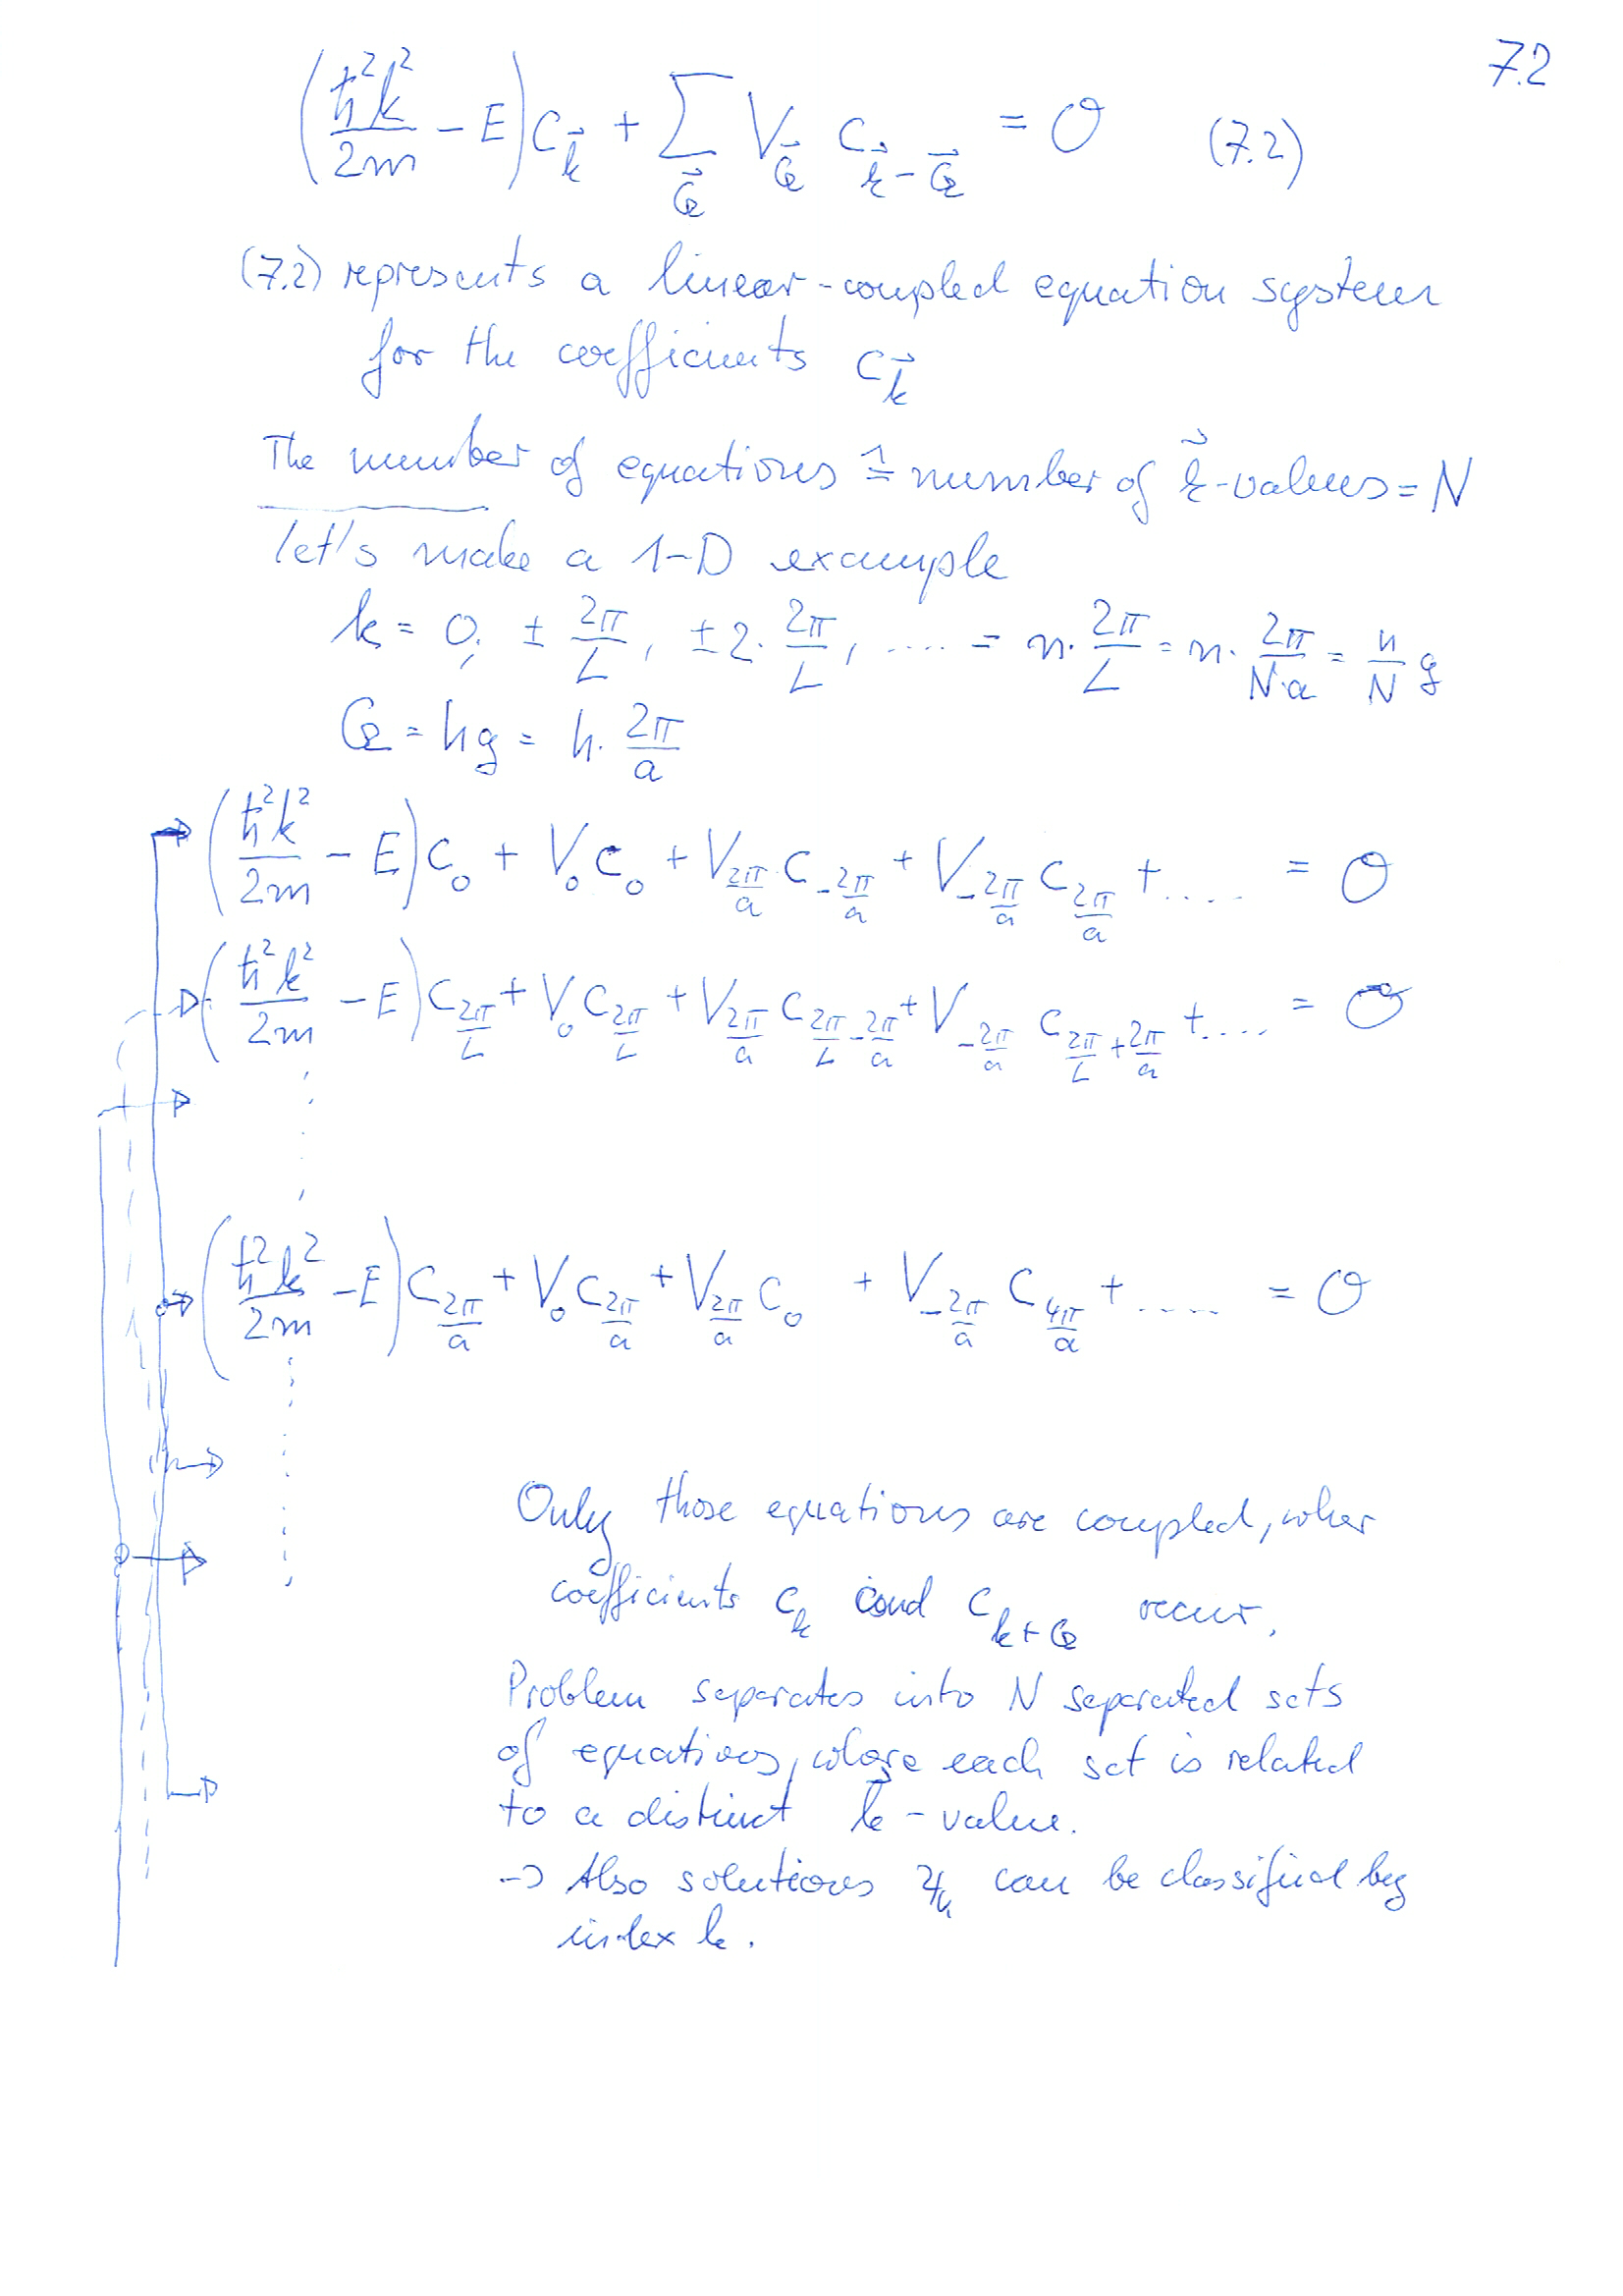 7.2
(ħ²k²/2m − E) C_k⃗ + Σ_G⃗ V_G⃗ C_k⃗−G⃗ = 0 (7.2)
(7.2) represents a linear-coupled equation system
for the coefficients C_k⃗
The number of equations ≙ number of k⃗-values = N
let's make a 1-D example
k = 0, ± 2π/L, ±2· 2π/L, .... = n· 2π/L = n· 2π/N·a = n/N g
G = hg = h· 2π/a
(ħ²k²/2m − E) C_0 + V_0 C_0 + V_2π/a C_−2π/a + V_−2π/a C_2π/a + .... = 0
(ħ²k²/2m − E) C_2π/L + V_0 C_2π/L + V_2π/a C_2π/L−2π/a + V_−2π/a C_2π/L+2π/a + .... = 0
(ħ²k²/2m − E) C_2π/a + V_0 C_2π/a + V_2π/a C_0 + V_−2π/a C_4π/a + .... = 0
Only those equations are coupled, wher
coefficients C_k and C_k+G occur.
Problem separates into N separated sets
of equations, where each set is related
to a distinct k-value.
→ Also solutions Ψ_k can be classified by
index k.